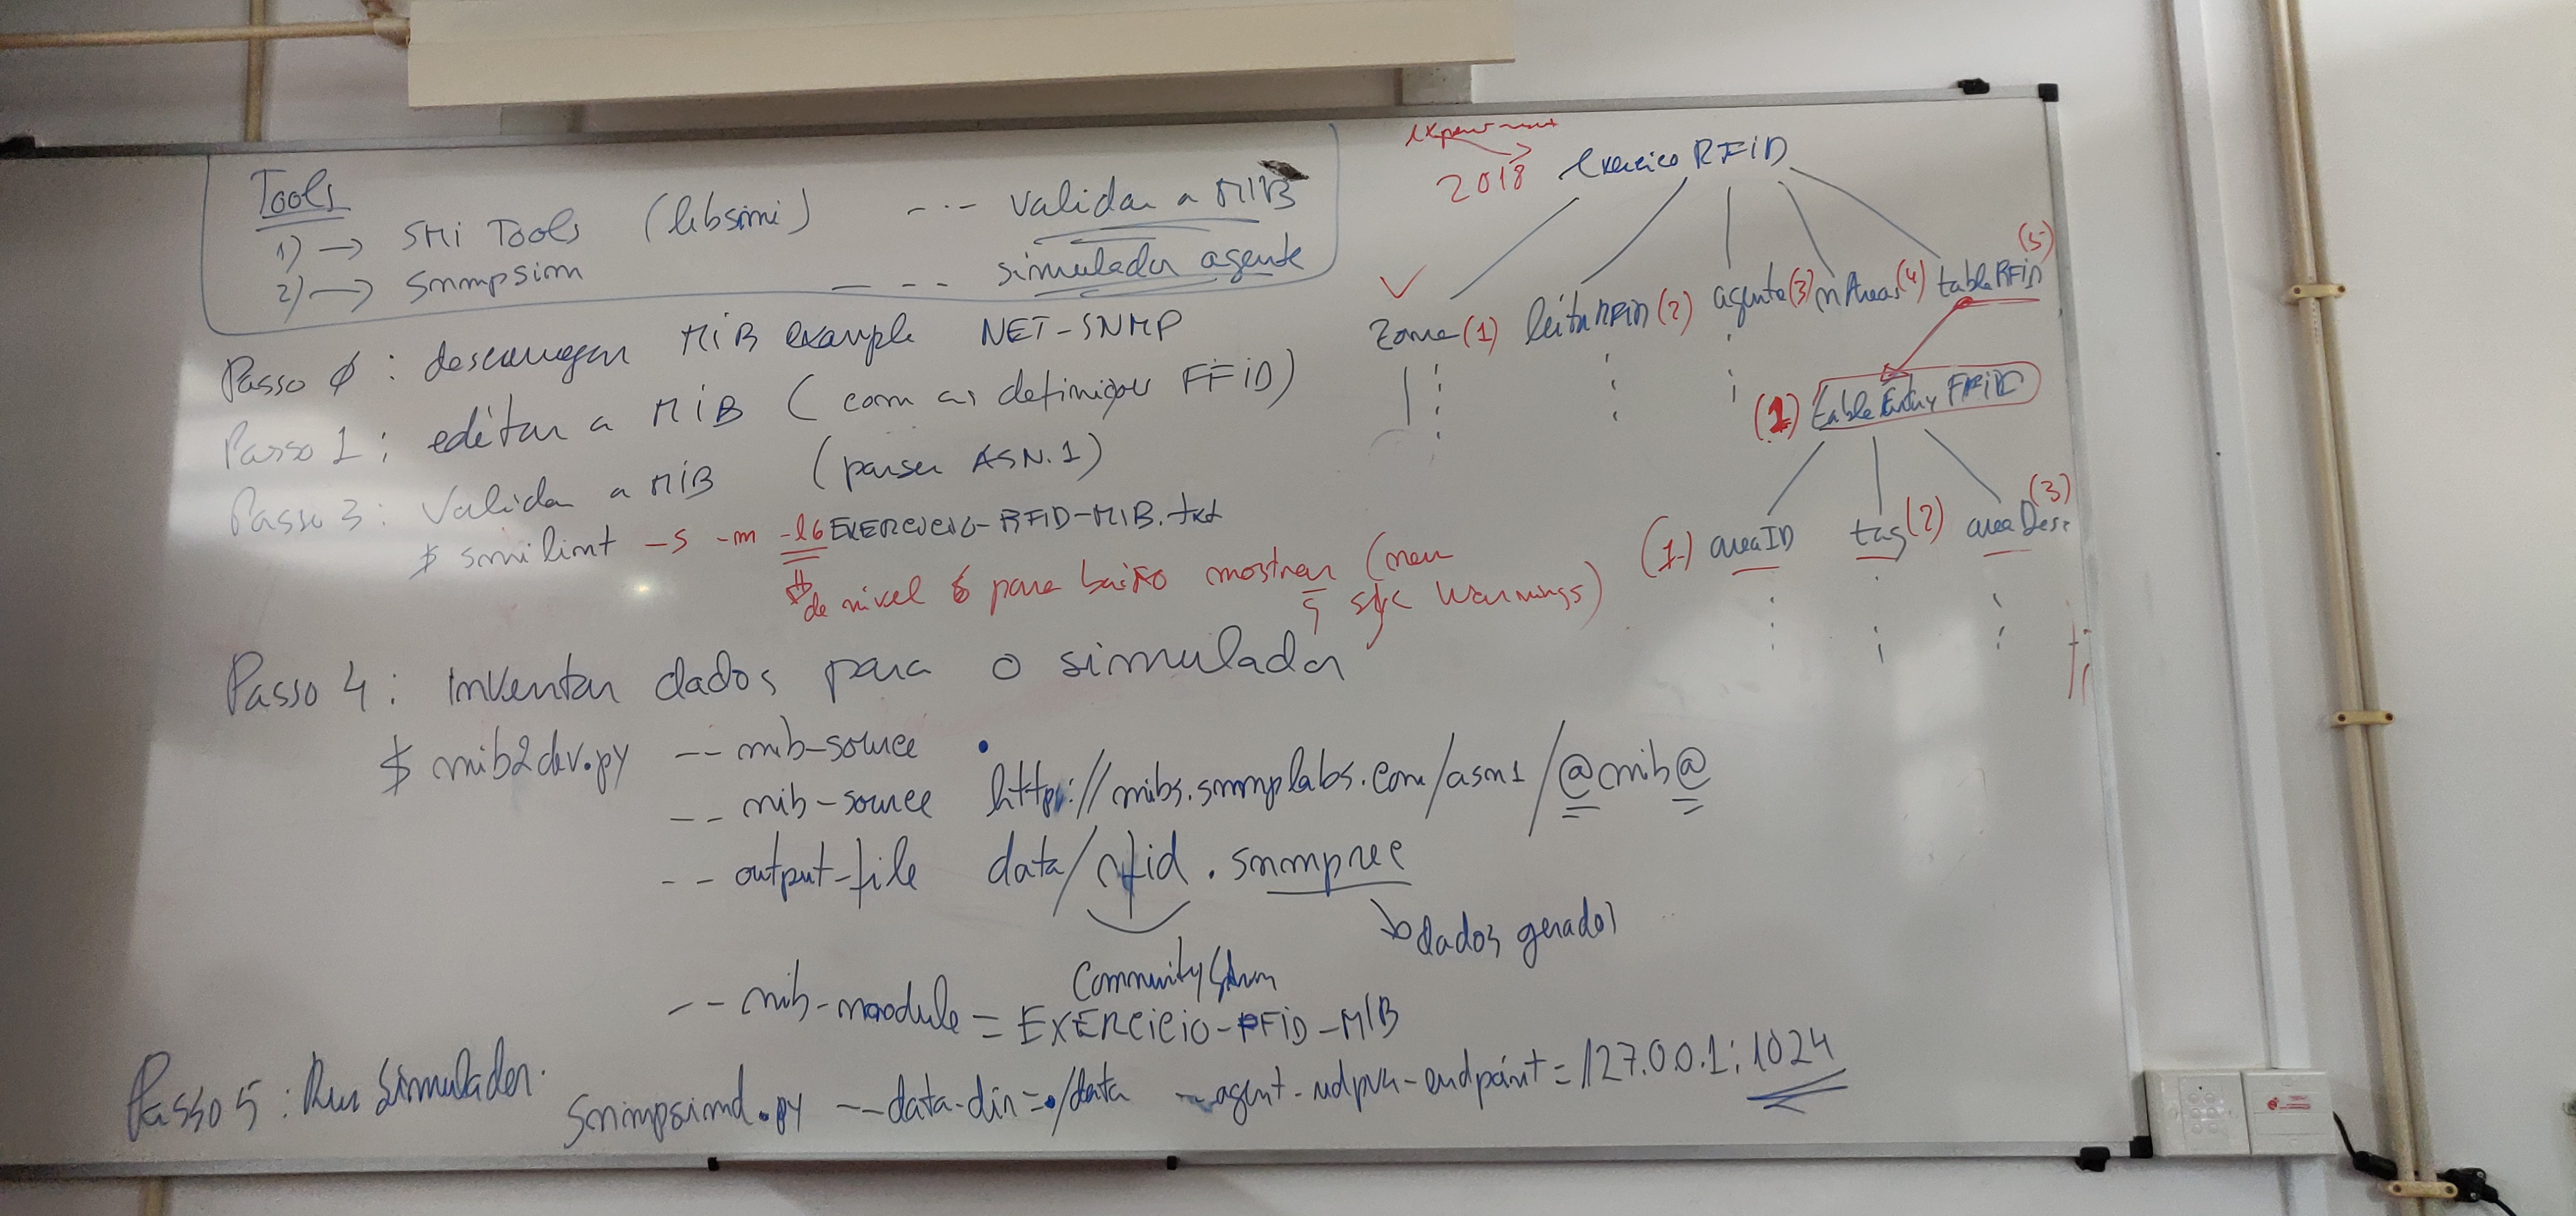 Tools
1) → SMi Tools (libsmi) --- validar a MIB
2) → Snmpsim ---- simulador agente
Passo 0 : descarregar MiB example NET-SNMP
Passo 1 : editar a MiB ( com as definições FFiD)
Passo 3 : Validar a MiB (parser ASN.1)
$ smilint -s -m -l6 EXERCICIO-RFID-MIB.txt
de nivel 6 para baixo mostrar ( Warnings)
Passo 4 : Inventar dados para o simulador
$ mib2dev.py -- mib-source .
-- mib-source http://mibs.snmplabs.com/asn1/@mib@
-- output-file data/rfid.snmprec
dados gerados
Community
-- mib-module = EXERCICIO-RFiD-MIB
Passo 5 : Run Simulador.
Snmpsimd.py --data-dir=./data --agent-udpv4-endpoint=127.0.0.1:1024
2018 Exercicio RFiD
zona (1) leitorRFiD (2) agente (3) nAreas (4) tableRFiD (5)
(1) tableEntry FFiD
(1) areaID tag (2) areaDesc (3)